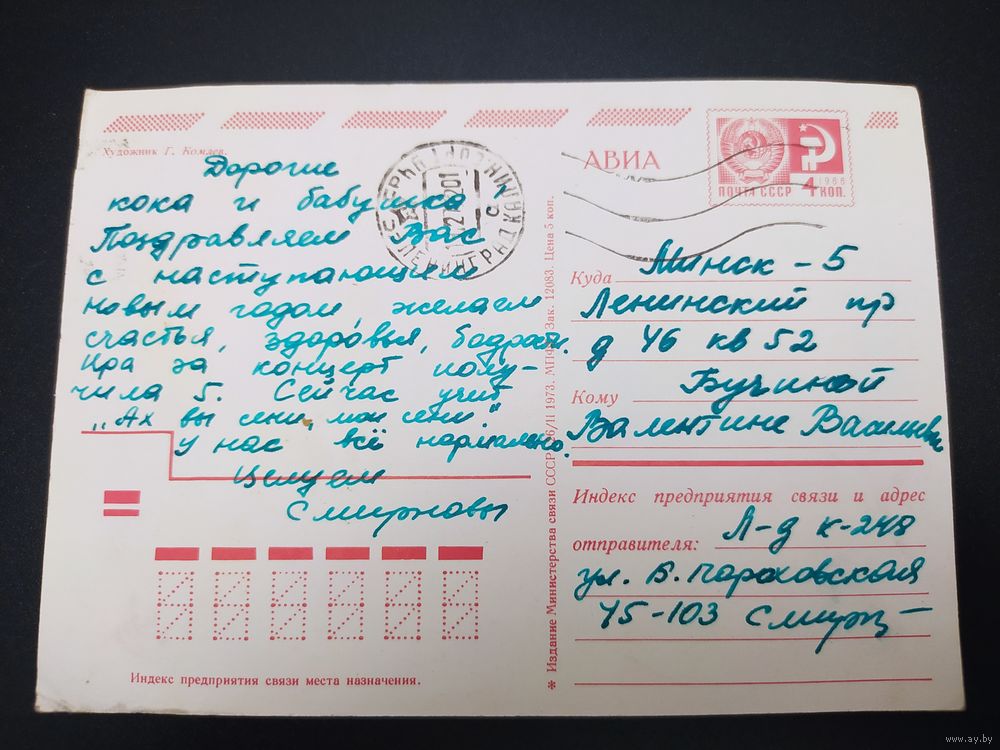 Художник Г. Комлев.
Дорогие
кока и бабушка
Поздравляем Вас
с наступающим
новым годом, желаем
счастья, здоровья, бодрости.
Ира за концерт полу-
чила 5. Сейчас учит
„Ах вы сени, мои сени".
У нас всё нормально.
Целуем
Смирновы
Индекс предприятия связи места назначения.
ЛЕНИНГРАД
АВИА
ПОЧТА СССР
4 КОП.
1966
Издание Министерства связи СССР. 26/II 1973. Зак. 12083. Цена 5 коп.
Куда Минск - 5
Ленинский пр
д 46 кв 52
Кому Бучиной
Валентине Васильевне
Индекс предприятия связи и адрес
отправителя: Л-д К-248
ул. Б. Пороховская
45-103 Смирн
www.ay.by